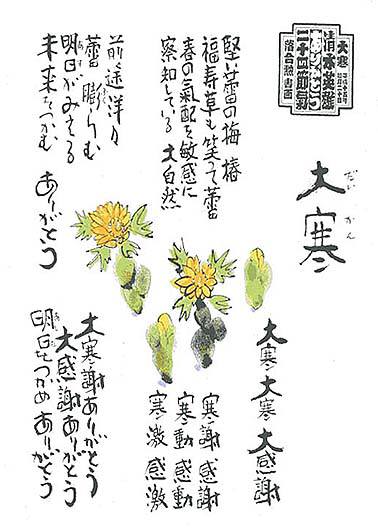 大寒
清水英雄
ありがとう
二十四節氣
落合勲書画
大寒
だい かん
堅い蕾の梅 椿
福寿草も笑って蕾
春の氣配を敏感に
察知している 大自然
前途洋々
蕾 膨らむ
明日がみえる
未来をつかむ ありがとう
大寒大寒 大感謝
寒謝 感謝
寒動 感動
寒激 感激
大寒謝ありがとう
大感謝ありがとう
明日をつかめ ありがとう